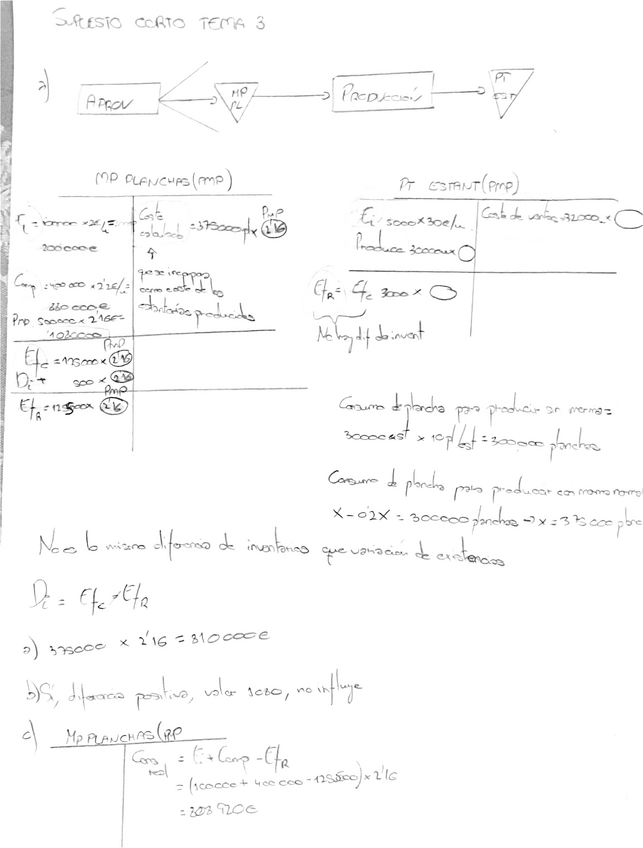 SUPUESTO CORTO TEMA 3
a) APROV MP PL PRODUCCIÓN PT EST
MP PLANCHAS (PMP)
Ei = 100000 x 2€/u = 200000€
Coste calculado = 375000 pl x PMP 2'16
que se incorpora como coste de los estanterías producidos
Comp = 400000 x 2'2€/u = 880000€
PMP 500000 x 2'16€ = 1080000
Efc = 125000 x PMP 2'16
Di + 500 x 2'16
EfR = 125500 x PMP 2'16
PT ESTANT (PMP)
Ei 5000 x 30€/u
Coste de ventas = 32000 x
Produce 30000u x
EfR = Efc 3000 x
No hay dif de invent
Consumo de plancha para producir sin merma =
30000 est x 10 pl/est = 300000 planchas
Consumo de plancha para producir con merma normal
X - 0'2X = 300000 planchas → x = 375000 planc
No es lo mismo diferencia de inventarios que variación de existencias
Di = Efc ≠ EfR
a) 375000 x 2'16 = 810000€
b) Sí, diferencia positiva, valor 1080, no influye
c) MP PLANCHAS (PMP
Cons real = Ei + Comp - EfR
= (100000 + 400000 - 125500) x 2'16
= 808920€